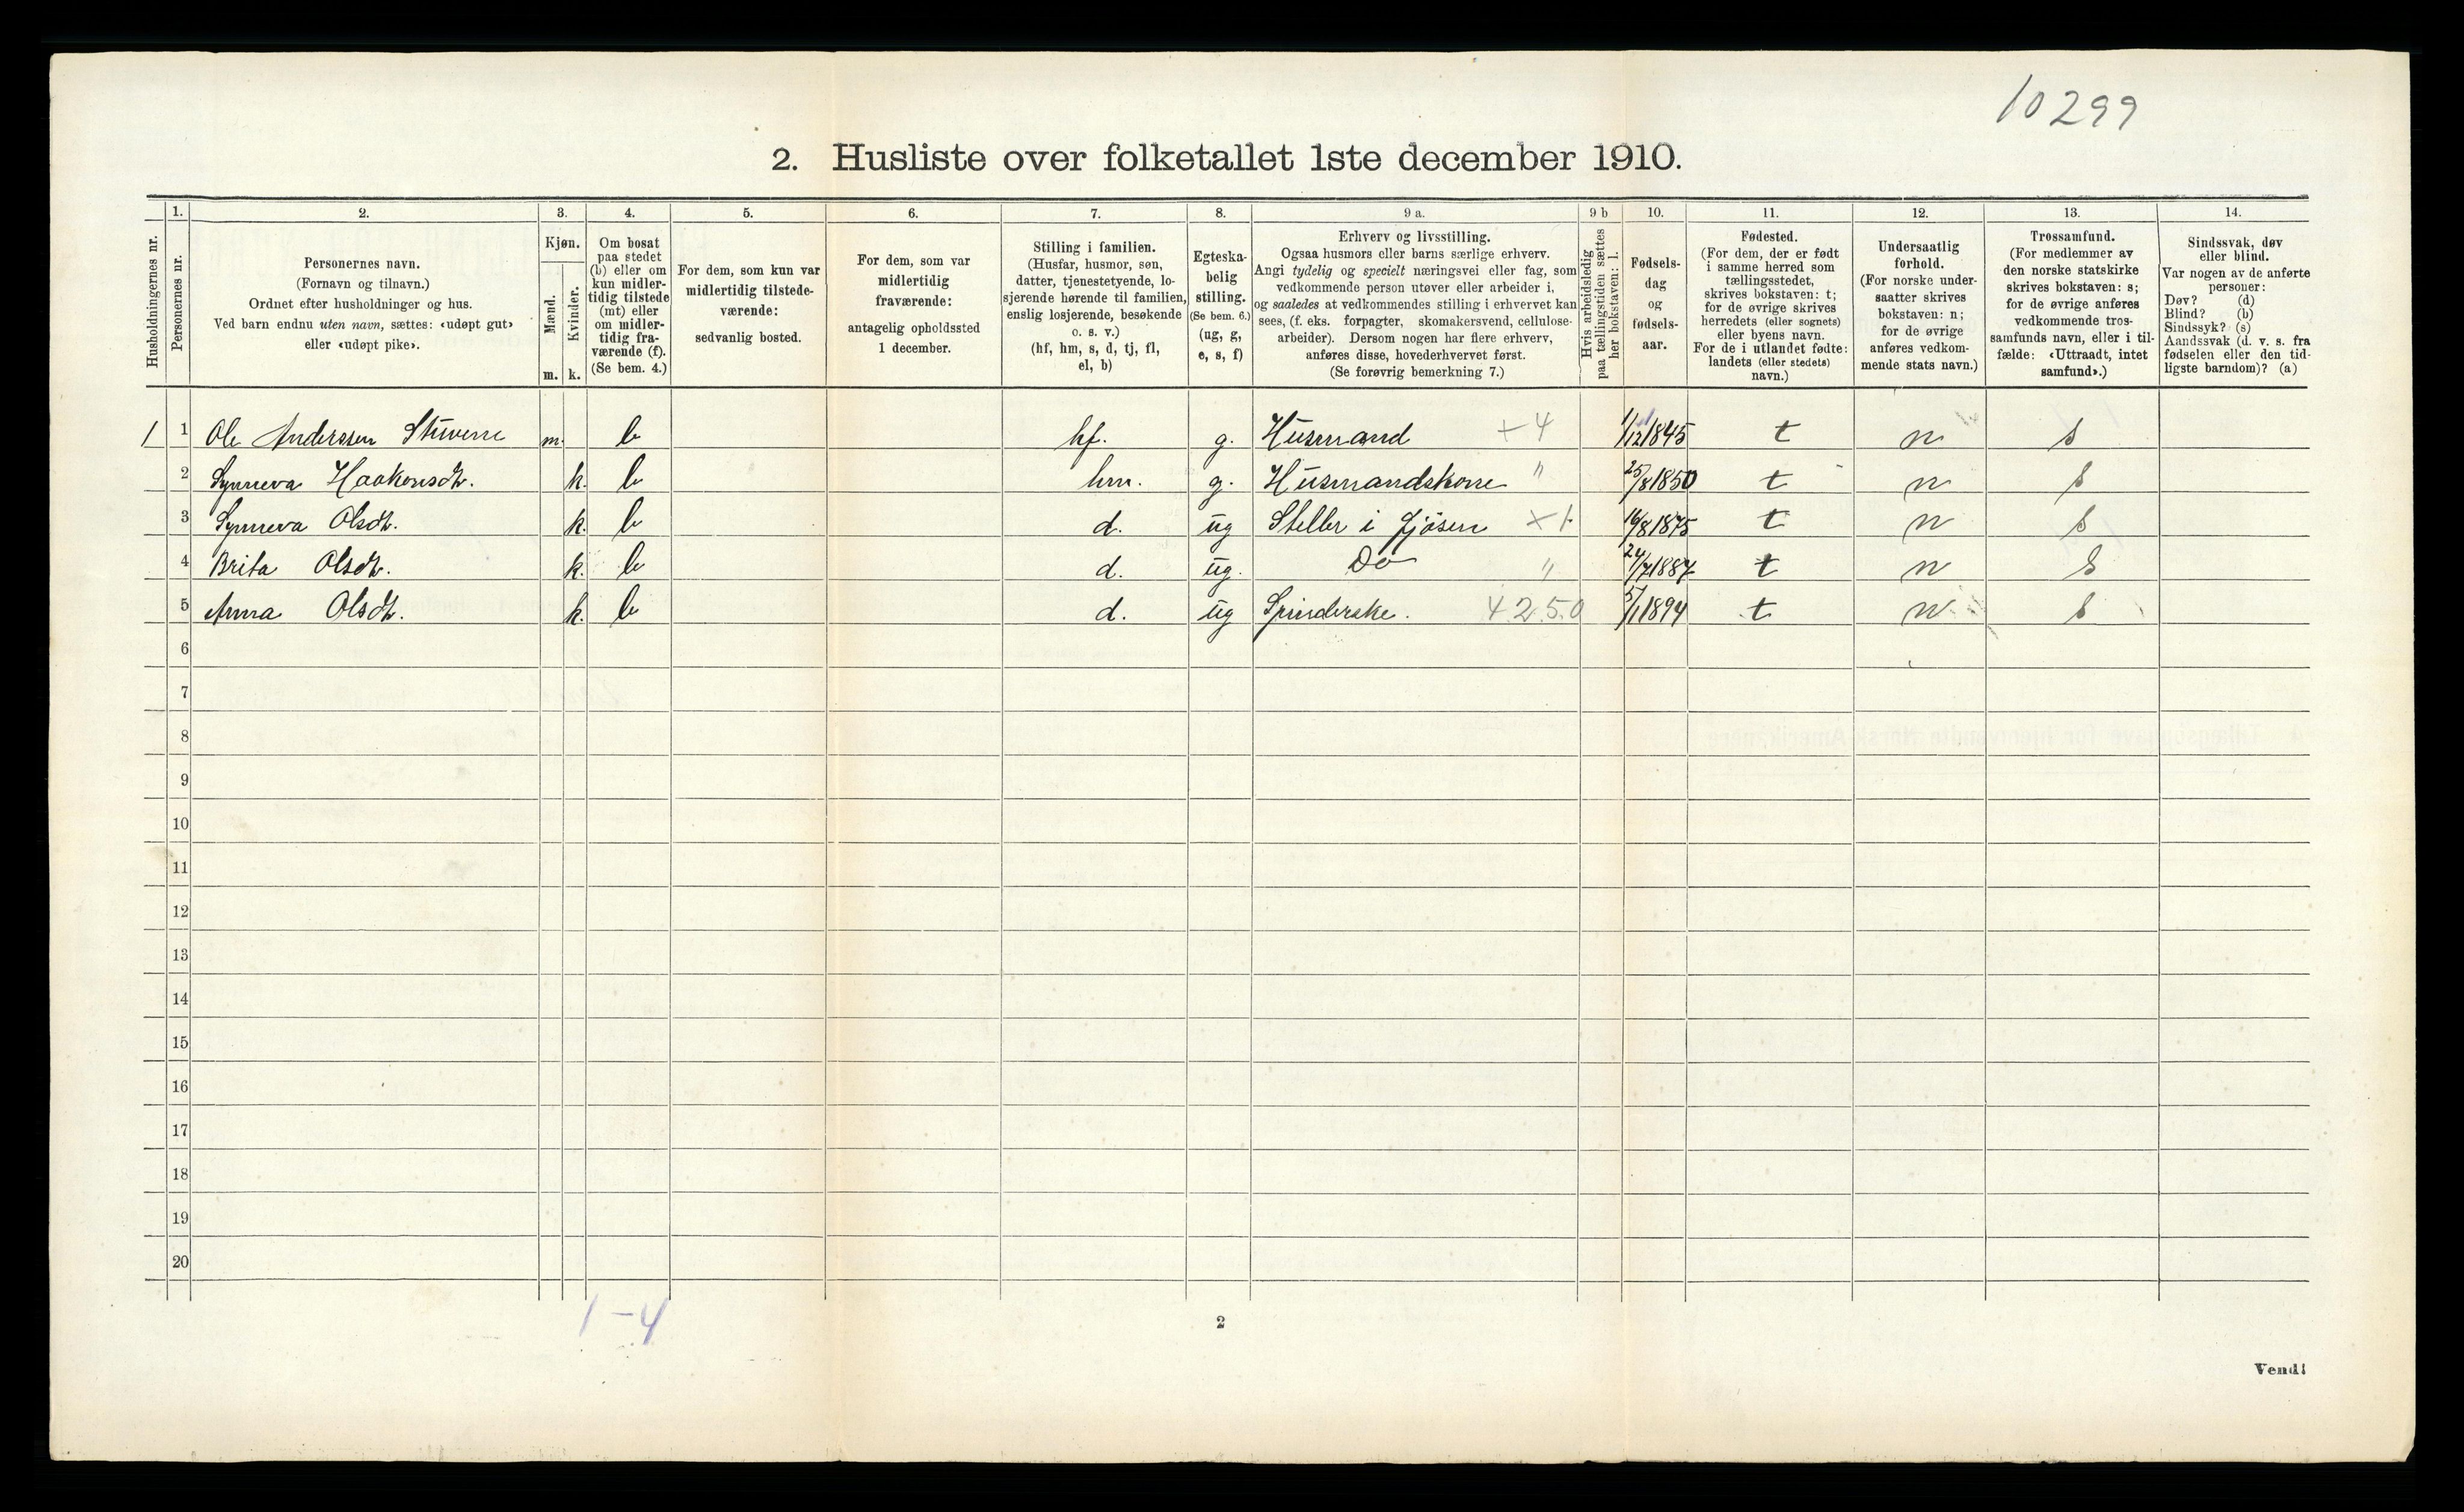 10299
2. Husliste over folketallet 1ste december 1910.
Husholdningernes nr.
1.
Personernes nr.
2.
Personernes navn.
(Fornavn og tilnavn.)
Ordnet efter husholdninger og hus.
Ved barn endnu uten navn, sættes: «udøpt gut»
eller «udøpt pike».
3.
Kjøn.
Mænd.
Kvinder.
m. k.
4.
Om bosat
paa stedet
(b) eller om
kun midler-
tidig tilstede
(mt) eller
om midler-
tidig fra-
værende (f).
(Se bem. 4.)
5.
For dem, som kun var
midlertidig tilstede-
værende:
sedvanlig bosted.
6.
For dem, som var
midlertidig
fraværende:
antagelig opholdssted
1 december.
7.
Stilling i familien.
(Husfar, husmor, søn,
datter, tjenestetyende, lo-
sjerende hørende til familien,
enslig losjerende, besøkende
o. s. v.)
(hf, hm, s, d, tj, fl,
el, b)
8.
Egteska-
belig
stilling.
(Se bem. 6.)
(ug, g,
e, s, f)
9 a.
Erhverv og livsstilling.
Ogsaa husmors eller barns særlige erhverv.
Angi tydelig og specielt næringsvei eller fag, som
vedkommende person utøver eller arbeider i,
og saaledes at vedkommendes stilling i erhvervet kan
sees, (f. eks. forpagter, skomakersvend, cellulose-
arbeider). Dersom nogen har flere erhverv,
anføres disse, hovederhvervet først.
(Se forøvrig bemerkning 7.)
9 b
Hvis arbeidsledig
paa tællingstiden sættes
her bokstaven: l.
10.
Fødsels-
dag
og
fødsels-
aar.
11.
Fødested.
(For dem, der er født
i samme herred som
tællingsstedet,
skrives bokstaven: t;
for de øvrige skrives
herredets (eller sognets)
eller byens navn.
For de i utlandet fødte:
landets (eller stedets)
navn.)
12.
Undersaatlig
forhold.
(For norske under-
saatter skrives
bokstaven: n;
for de øvrige
anføres vedkom-
mende stats navn.)
13.
Trossamfund.
(For medlemmer av
den norske statskirke
skrives bokstaven: s;
for de øvrige anføres
vedkommende tros-
samfunds navn, eller i til-
fælde: «Uttraadt, intet
samfund».)
14.
Sindssvak, døv
eller blind.
Var nogen av de anførte
personer:
Døv? (d)
Blind? (b)
Sindssyk? (s)
Aandssvak (d. v. s. fra
fødselen eller den tid-
ligste barndom)? (a)
1 1 Ole Anderssen m. b hf. g. Husmand +4 1/12 1845 t n s
2 Synneva Haakonsdt. k. b hm. g. Husmandskone " 25/8 1850 t n s
3 Synneva Olsdt. k. b d. ug Steller i fjøsen ×1 16/8 1875 t n s
4 Brita Olsdt. k. b d. ug. Do " 24/7 1887 t n s
5 Anna Olsdt. k. b d. ug Spinderske. 4250 5/1 1894 t n s
6
7
8
9
10
11
12
13
14
15
16
17
18
19
20
1-4
2
Vend!